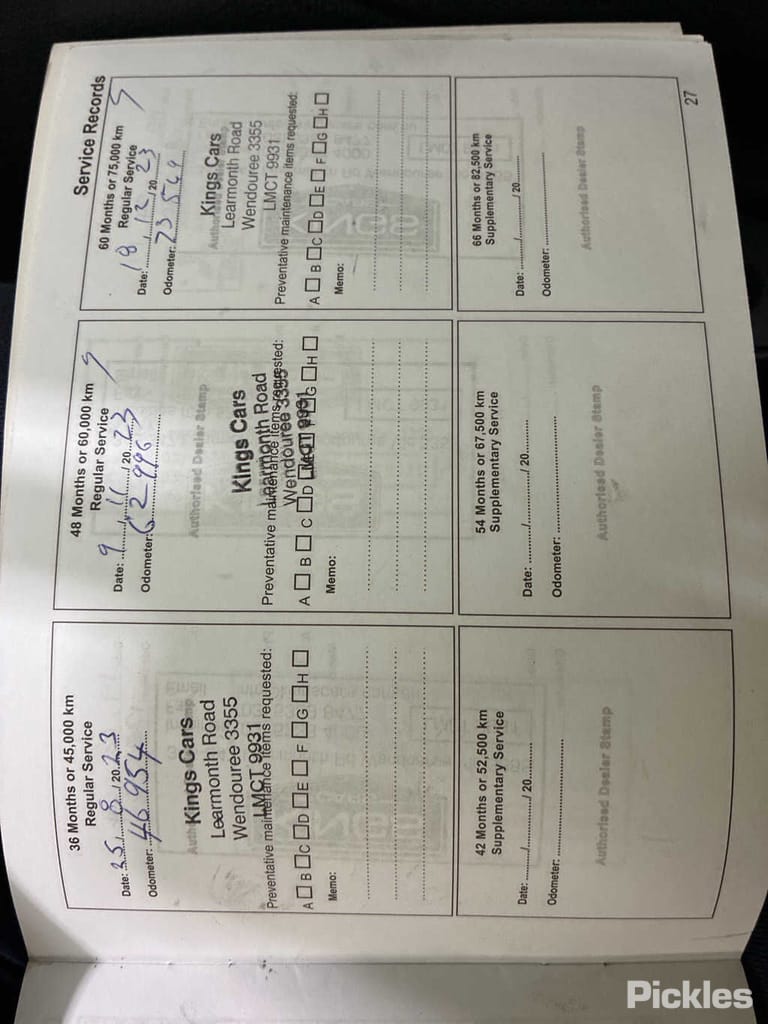 Service Records
36 Months or 45,000 km
Regular Service
Date: 25/8/2023
Odometer: 46954
Kings Cars
Learmonth Road
Wendouree 3355
LMCT 9931
Preventative maintenance items requested:
A □ B □ C □ D □ E □ F □ G □ H □
Memo:
48 Months or 60,000 km
Regular Service
Date: 9/11/2023
Odometer: 62996
Authorised Dealer Stamp
Kings Cars
Learmonth Road
Wendouree 3355
LMCT 9931
Preventative maintenance items requested:
A □ B □ C □ D □ E □ F □ G □ H □
Memo:
60 Months or 75,000 km
Regular Service
Date: 18/12/2023
Odometer: 73549
Kings Cars
Learmonth Road
Wendouree 3355
LMCT 9931
Preventative maintenance items requested:
A □ B □ C □ D □ E □ F □ G □ H □
Memo:
42 Months or 52,500 km
Supplementary Service
Date: ......../......../ 20........
Odometer:
Authorised Dealer Stamp
54 Months or 67,500 km
Supplementary Service
Date: ......../......../ 20........
Odometer:
Authorised Dealer Stamp
66 Months or 82,500 km
Supplementary Service
Date: ......../......../ 20........
Odometer:
Authorised Dealer Stamp
27
Pickles